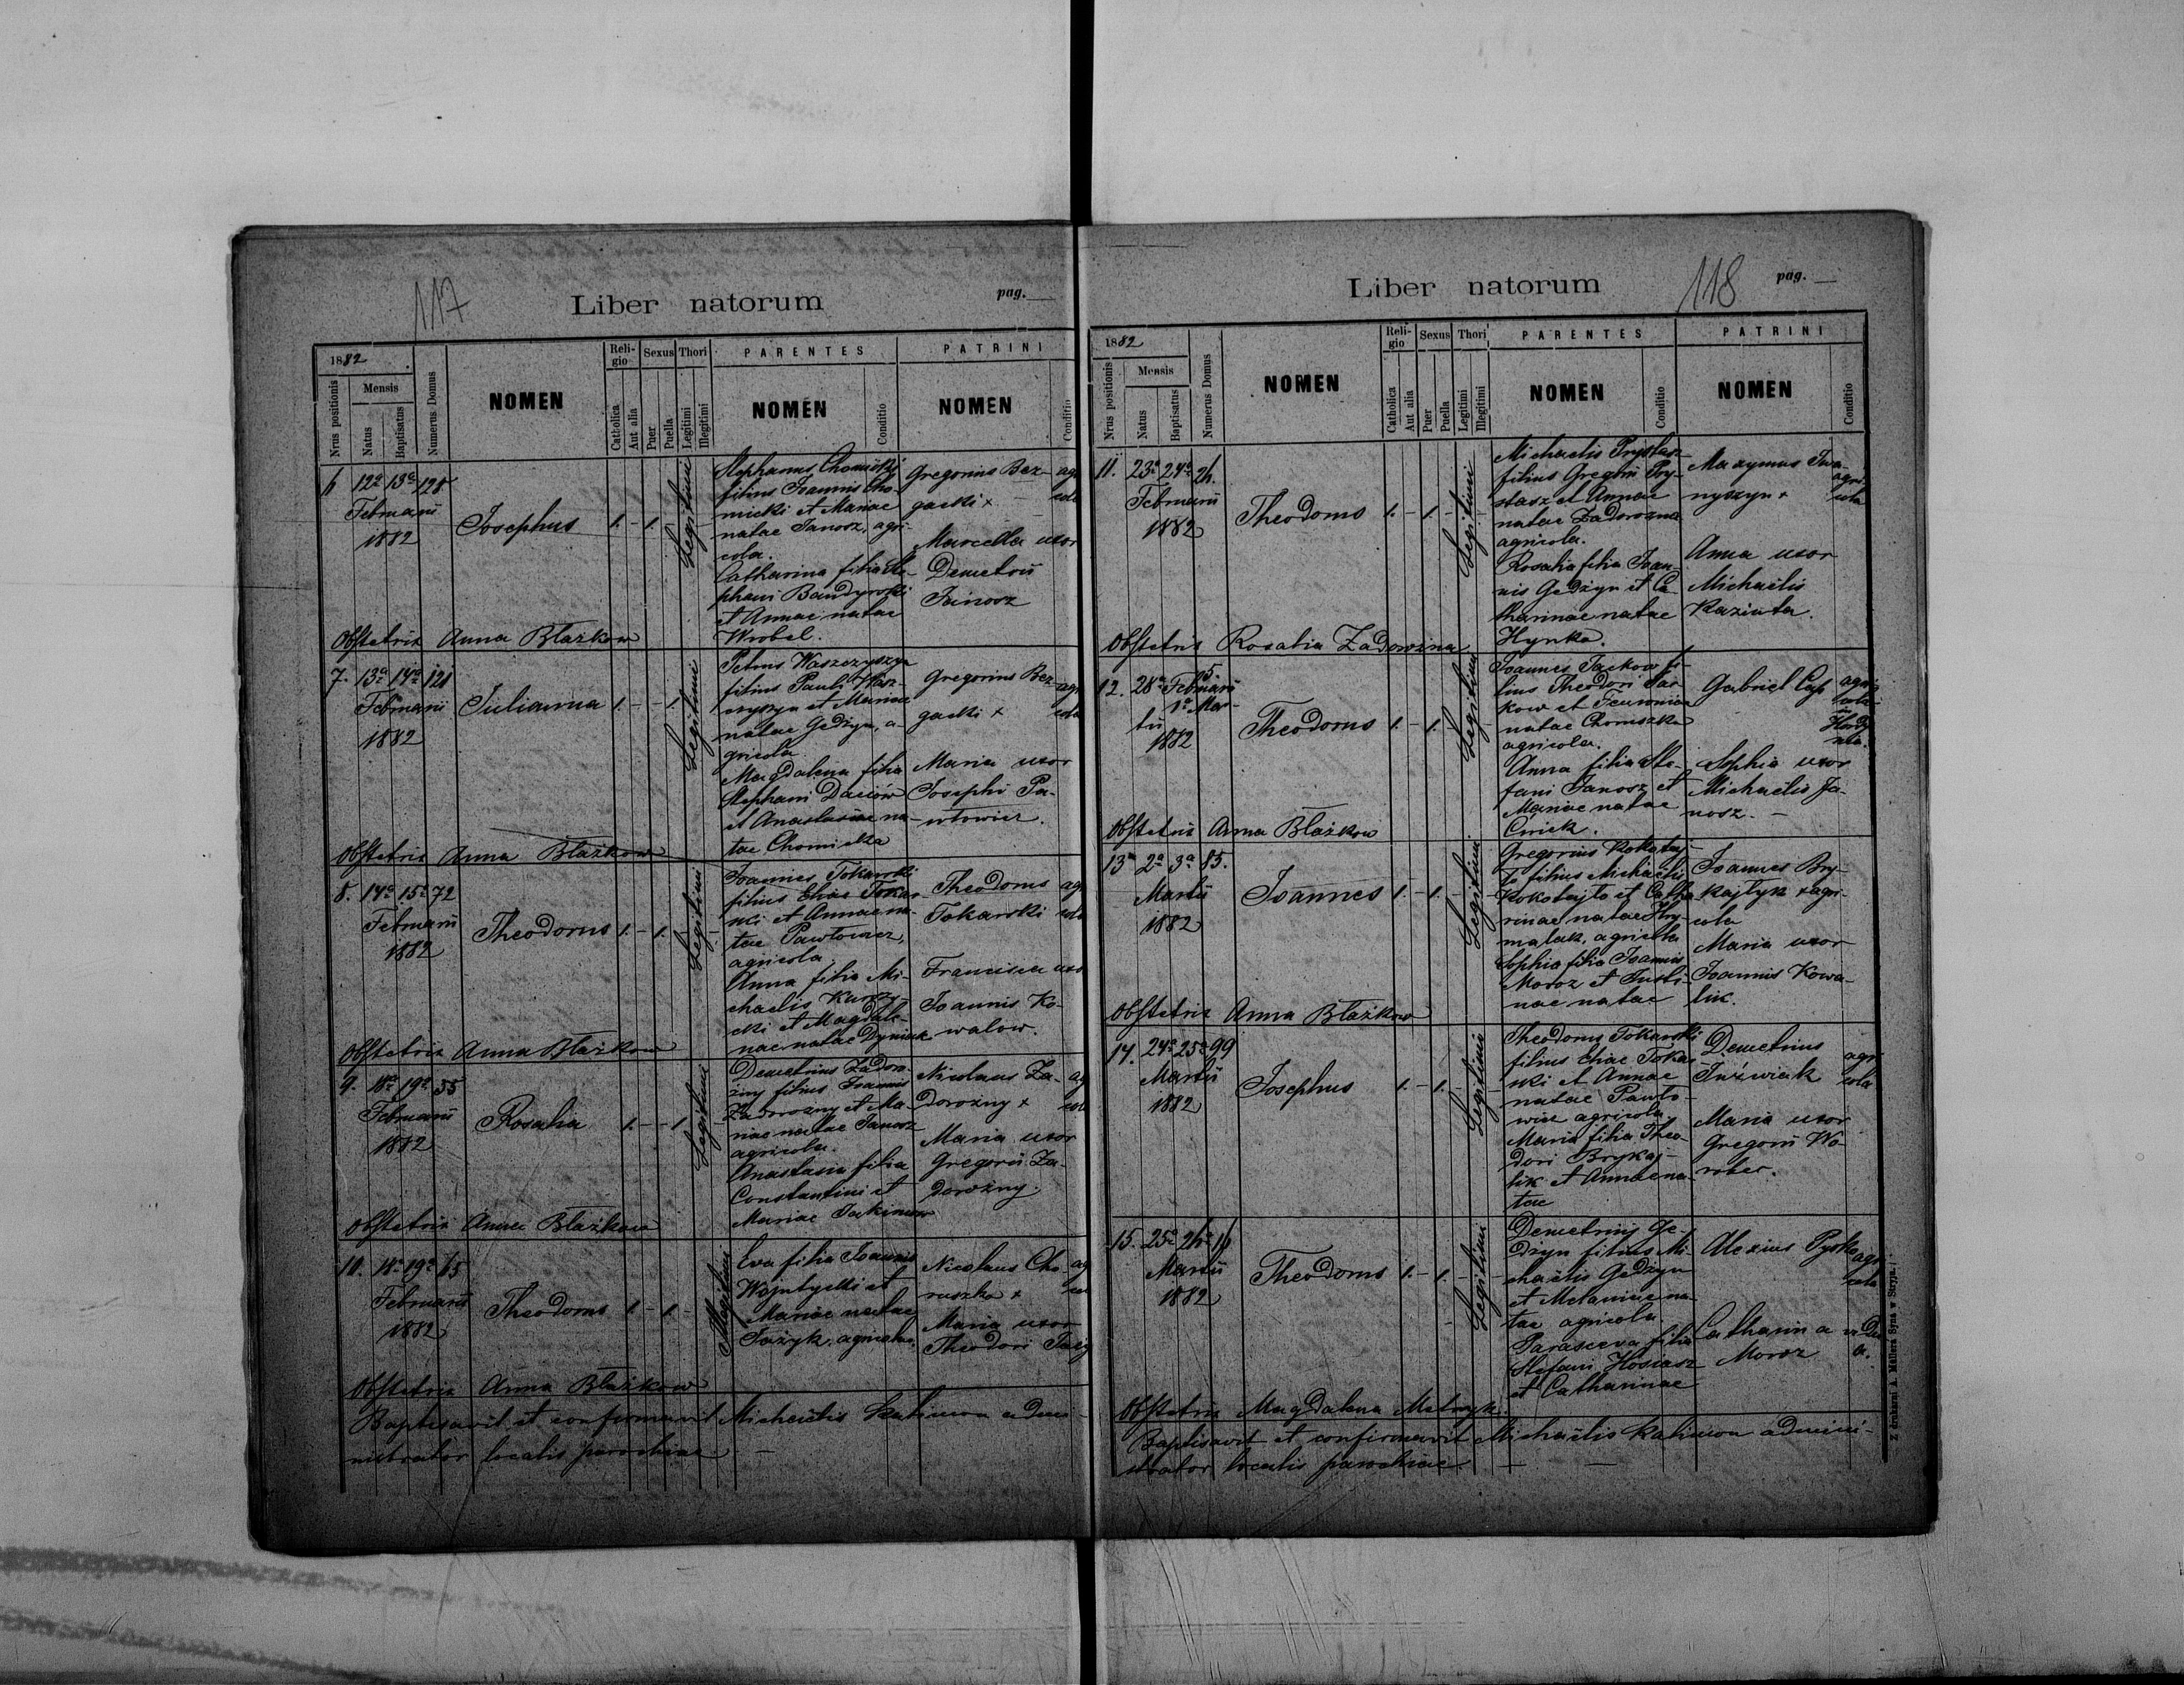 117
Liber natorum
pag.
1882
Nrus positionis
Mensis
Natus
Baptisatus
Numerus Domus
NOMEN
Religio
Catholica
Aut alia
Sexus
Puer
Puella
Thori
Legitimi
Illegitimi
PARENTES
NOMEN
Conditio
PATRINI
NOMEN
Conditio
6 12a 13a 128
Februarii
1882
Josephus
1. - 1. -
Legitimi
Stephanus Chomicki
filius Joannis Cho-
micki et Mariae
natae Janosz, agri-
cola.
Catharina filia Ste-
phani Bandyrski
et Annae natae
Wrobel.
Gregorius Bez-
gacki x
Marcella uxor
Demetrii
Janosz
Obstetrix Anna Blażkow
7. 13a 14a 121
Februarii
1882
Julianna
1. - - 1.
Legitimi
Petrus Waszczyszyn
filius Pauli Wasz-
czyszyn et Mariae
natae Gedzyn, a-
gricola
Magdalena filia
Stephani Daciów
et Anastasiae na-
tae Chomicka
Gregorius Bez-
gacki x
Maria uxor
Josephi Pa-
wlowicz.
Obstetrix Anna Blażkow
8. 14a 15a 72
Februarii
1882
Theodorus
1. - 1. -
Legitimi
Joannes Tokarski
filius Eliae Tokar-
ski et Annae na-
tae Pawłowicz,
agricola
Anna filia Mi-
chaelis
cki et Magdale-
nae natae Dyniak
Theodorus
Tokarski
Francisca uxor
Joannis Ko-
walow.
Obstetrix Anna Blażkow
9. 18a 19a 55
Februarii
1882
Rosalia
1. - - 1
Legitimi
Demetrius Zadoro-
żny filius Joannis
Zadorozny et Ma-
riae natae Janosz
agricola.
Anastasia filia
Constantini et
Mariae Jakimow
Nicolaus Za-
dorozny x
Maria uxor
Gregorii Za-
dorożny.
Obstetrix Anna Blażkow
10. 18a 19a 65
Februarii
1882
Theodorus
1. - 1. -
Illegitimi
Eva filia Joannis
Wojutycki et
Mariae natae
agricola.
Nicolaus Cho-
ruszka x
Maria uxor
Theodori
Obstetrix Anna Blażkow
Baptisavit et confirmavit Michaëlis Kalimon admi-
nistrator localis parochiae
118
Liber natorum
pag.
1882
Nrus positionis
Mensis
Natus
Baptisatus
Numerus Domus
NOMEN
Religio
Catholica
Aut alia
Sexus
Puer
Puella
Thori
Legitimi
Illegitimi
PARENTES
NOMEN
Conditio
PATRINI
NOMEN
Conditio
11. 23a 24a 26.
Februarii
1882
Theodorus
1. - 1. -
Legitimi
Michaelis Prystasz
filius Gregorii Pry-
stasz et Annae
natae Zadorozna
agricola.
Rosalia filia Joan-
nis Gedzyn et Ca-
tharinae natae
Hynka.
Maxymus Iwa-
nyszyn x
agri-
cola
Anna uxor
Michaëlis
Kaziuta.
Obstetrix Rosalia Zadorożna
12. 28a Februarii 5.
1a Mar-
tii
1882
Theodorus
1. - 1. -
Legitimi
Joannes Jackow fi-
lius Theodori Jac-
kow et
natae Choruszka
agricola.
Anna filia Ste-
fani Janosz et
Mariae natae
Cwiek.
Gabriel Cap
agri-
cola
Sophia uxor
Michaëlis Ja-
nosz. -
Obstetrix Anna Blażkow
13. 2a 3a 85.
Martii
1882
Joannes
1. - 1. -
Legitimi
Gregorius Kokotaj-
ło filius Michaëlis
Kokotajło et Catha-
rinae natae Hry-
malak, agricola
Sophia filia Joannis
Moroz et Justi-
nae natae
Joannes Bry-
kajlyk x agri-
cola
Maria uxor
Joannis Kowa-
lik.
Obstetrix Anna Blażkow
14. 24a 25a 99
Martii
1882
Josephus
1. - 1. -
Legitimi
Theodorus Tokarski
filius Eliae Tokar-
ski et Annae
natae Pawło-
wicz agricola.
Maria filia Theo-
dori Brykaj-
lik et Annae na-
tae
Demetrius
Juźwiak
agri-
cola
Maria uxor
Gregorii Wo-
robec.
15. 25a 26a 16
Martii
1882
Theodorus
1. - 1. -
Legitimi
Demetrius Ge-
dzyn filius Mi-
chaëlis Gedzyn
et Melaniae na-
tae agricola.
Parasceva filia
Stefani Hosiasz
et Catharinae
Alexius Pysko
agri-
cola
Catharina vidu-
Moroz a.
Obstetrix Magdalena Melnyk.
Baptisavit et confirmavit Michaëlis Kalimon admini-
strator localis parochiae.
Z drukarni A. Müllera Syna w Stryju.